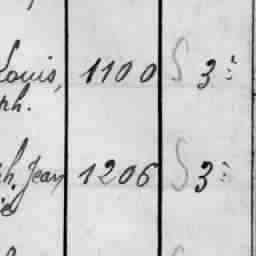 Louis, 1100 S 3:
ph.
h. Jean 1206 S 3: